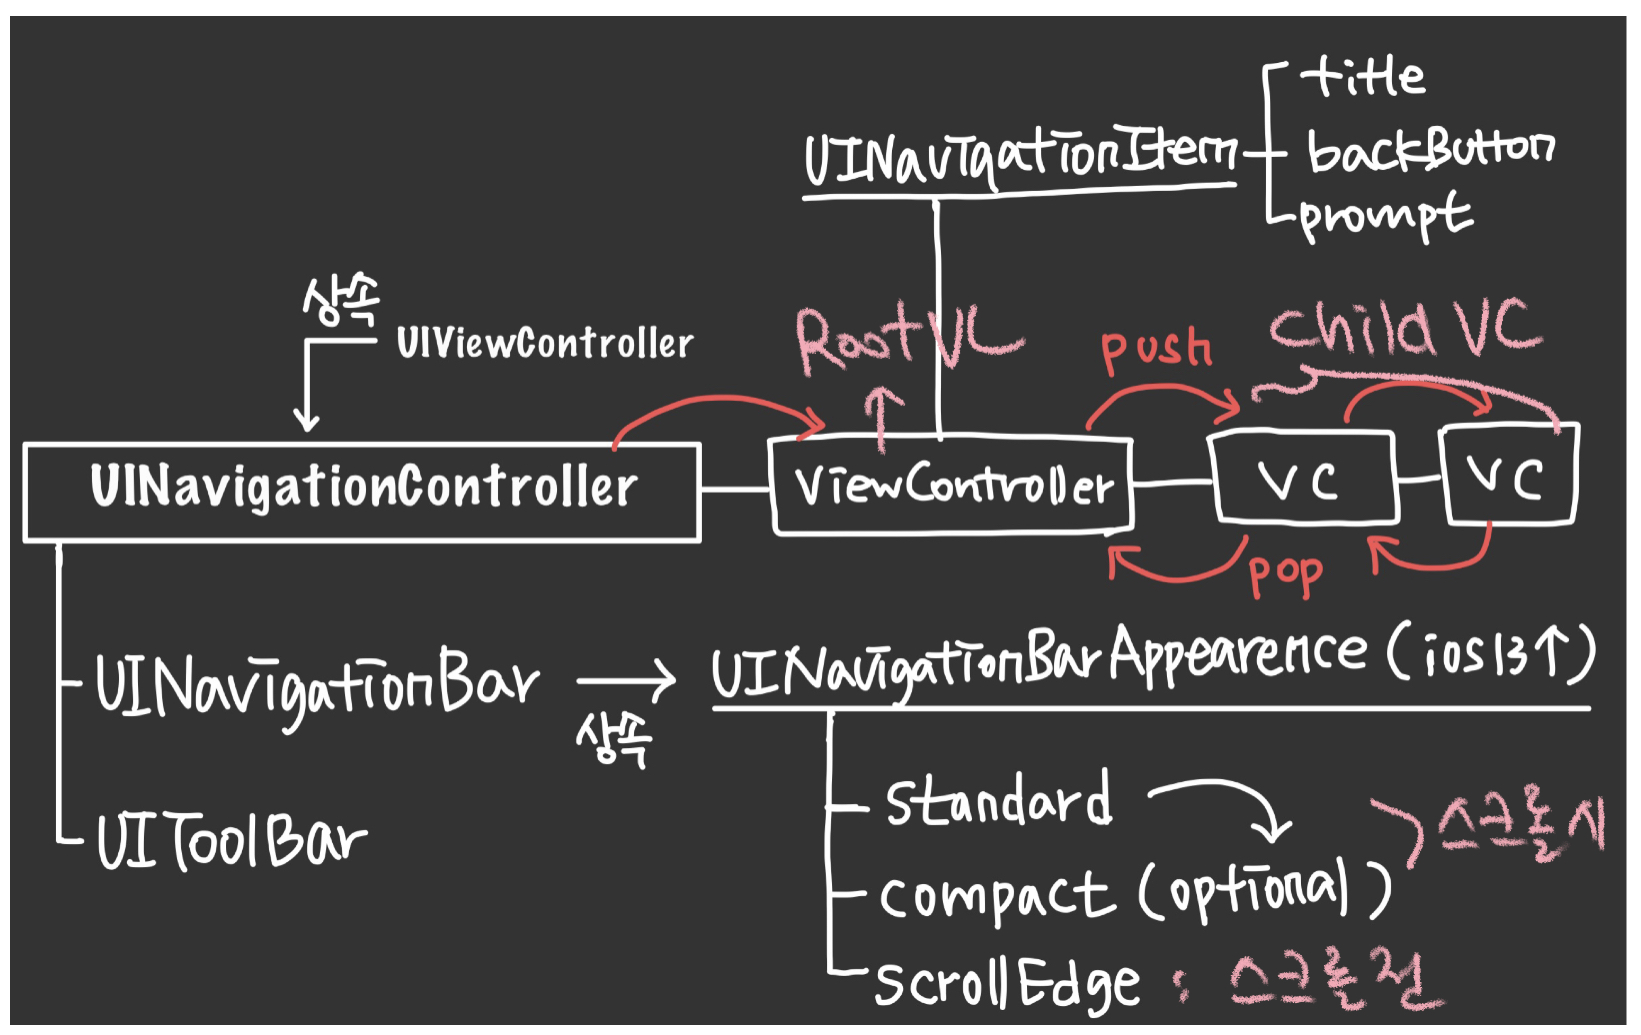 title
UINavigationItem
backButton
prompt
상속
UIViewController
Root VC
push
Child VC
UINavigationController
ViewController
VC
VC
pop
UINavigationBar
상속
UINavigationBarAppearence (ios13↑)
UIToolBar
Standard
스크롤 시
compact (optional)
scrollEdge : 스크롤 전